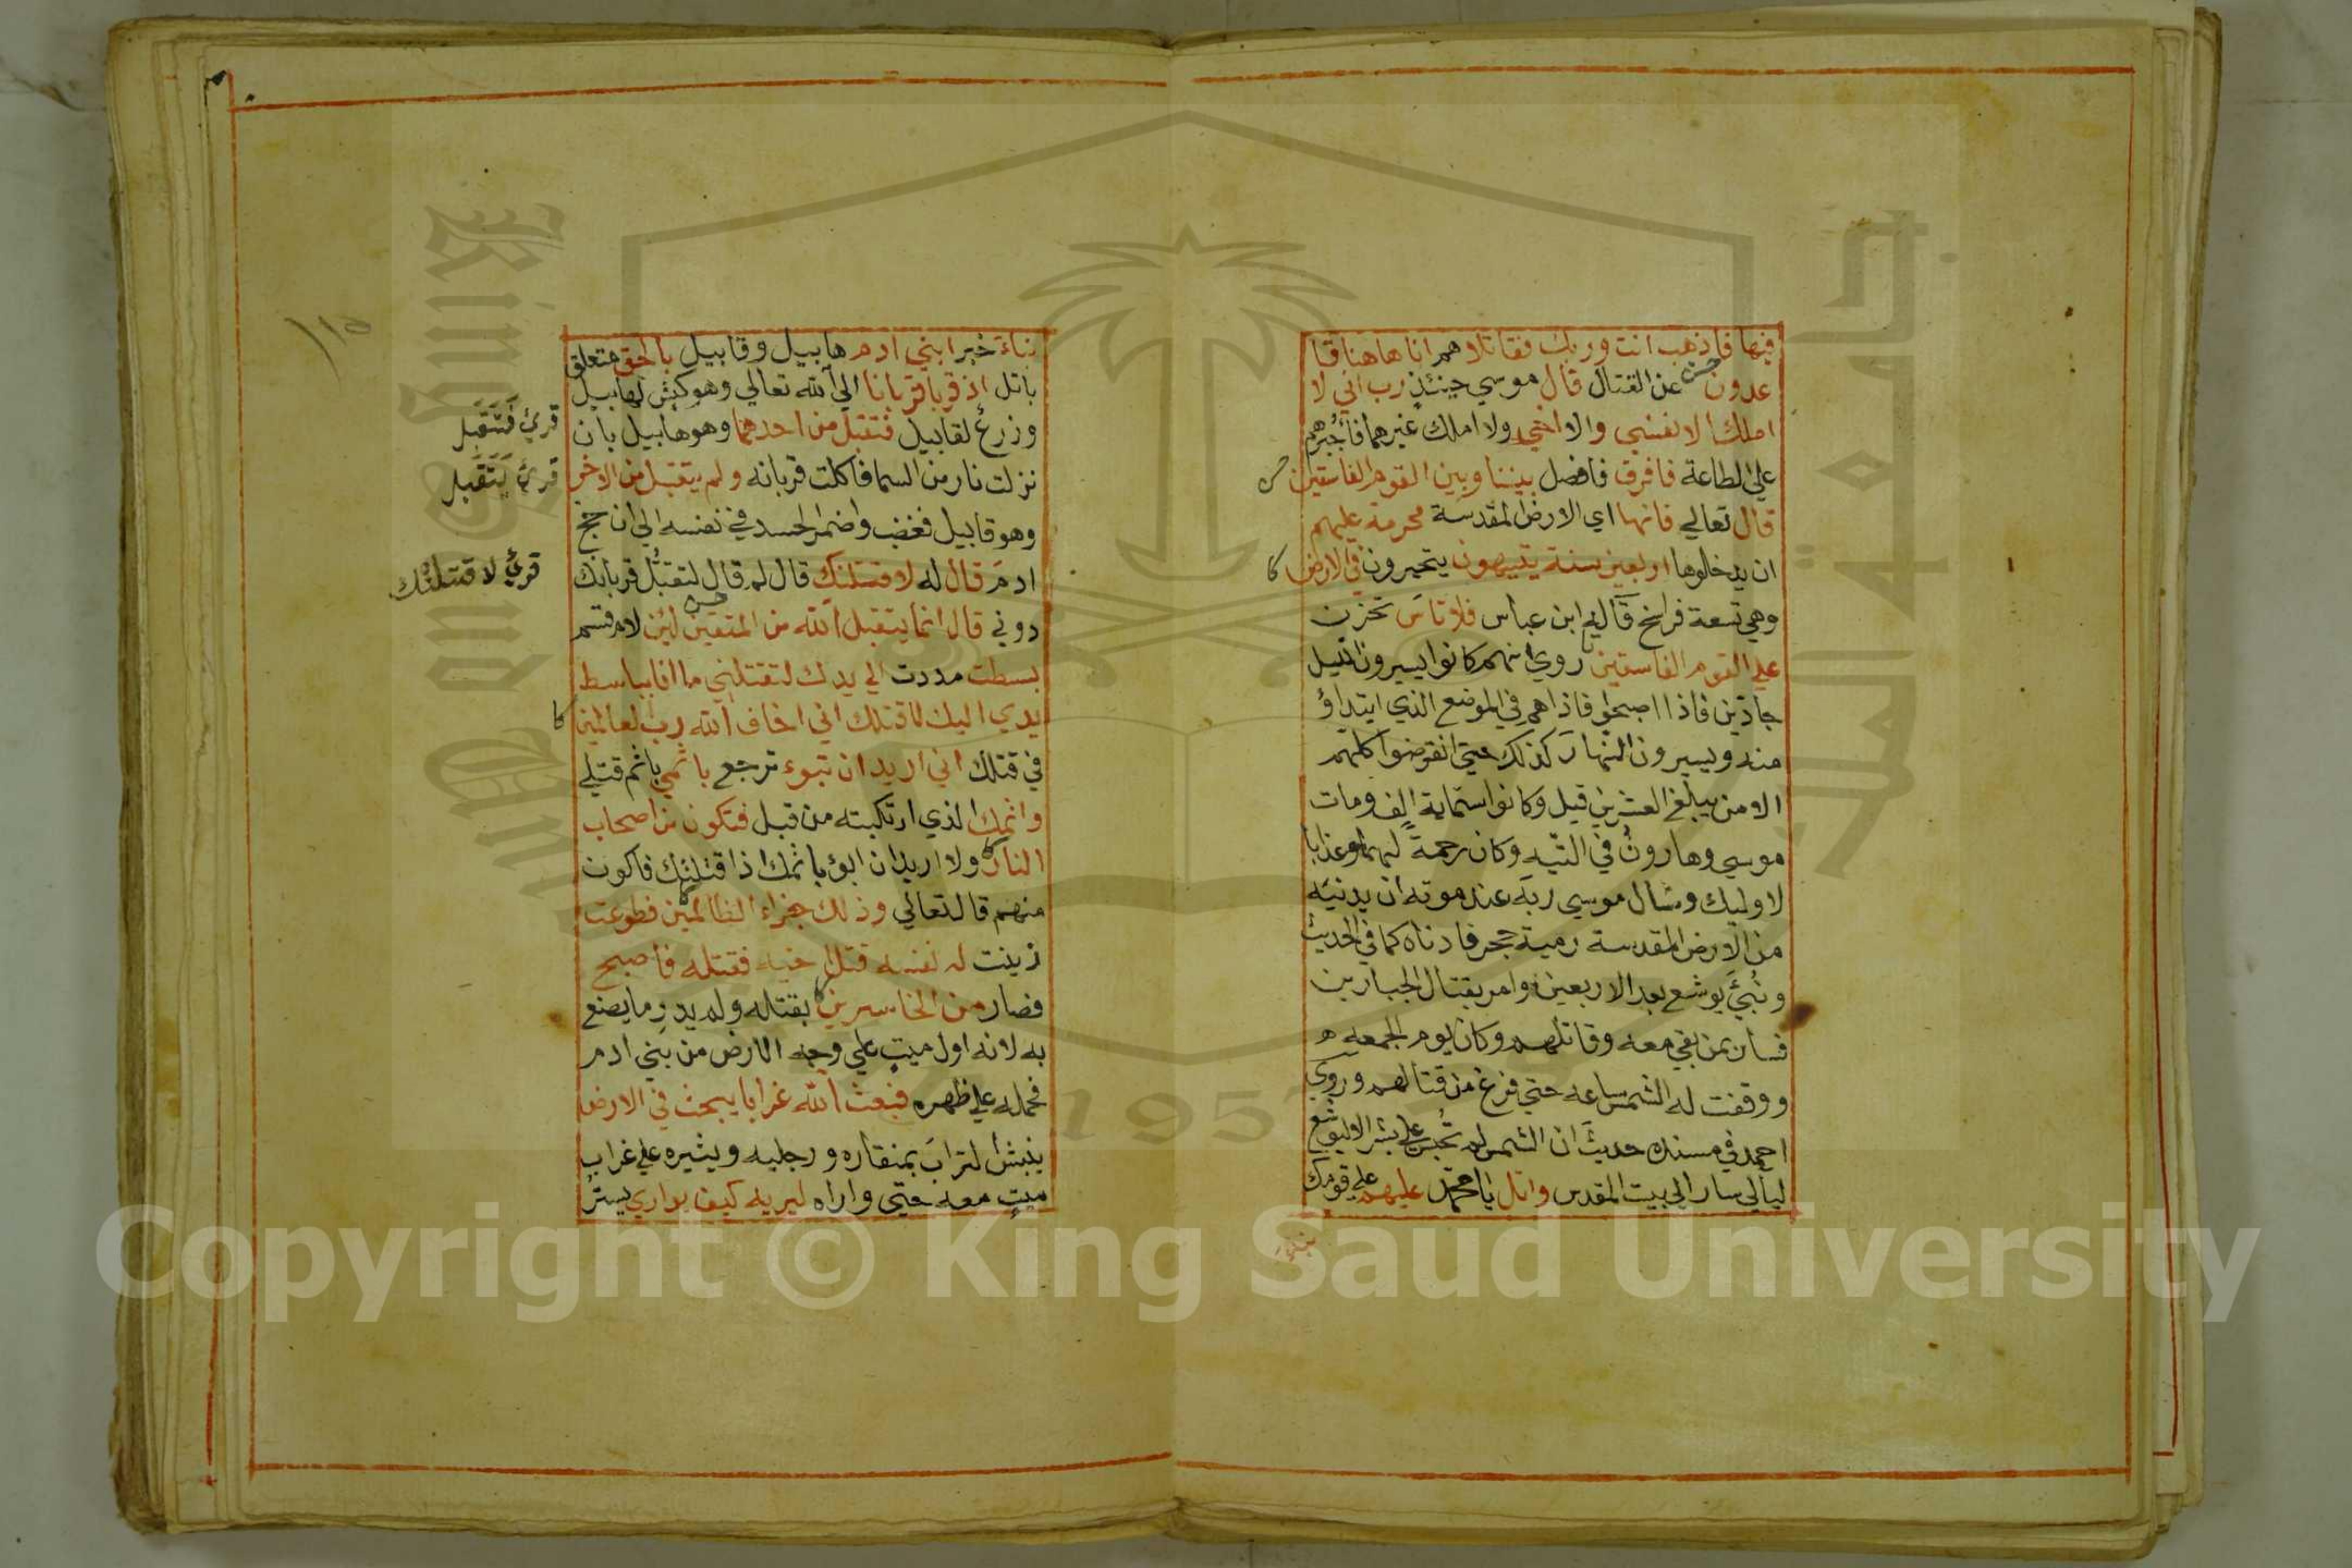 فيها فاذهب انت وربك فقاتلا هم انا هاهنا قا
عدون عن القتال قال موسي حينئذ رب اني لا
املك الا نفسي والا اخي ولا املك غيرهما فاجبرهم
علي الطاعة فافرق فافصل بيننا وبين القوم الفاسقين
قال تعالي فانها اي الارض المقدسة محرمة عليهم
ان يدخلوها اربعين سنة يتيهون يتحيرون في الارض
وهي تسعة فراسخ قاله ابن عباس فلا تاس تحزن
علي القوم الفاسقين روي انهم كانوا يسيرون الليل
جادّين فاذا اصبحوا فاذا هم في الموضع الذي ابتداؤ
منه ويسيرون النهار كذلك حتي انقرضوا كلهم
الا من يبلغ العشرين قيل وكانوا ستماية الف ومات
موسي وهارون في التيه وكان رحمة لهما وعذابا
لاوليك وسال موسي ربه عند موته ان يدنيه
من الارض المقدسة رمية حجر فادناه كما في الحديث
ونُبئَ يوشع بعد الاربعين وامر بقتال الجبارين
فسار بمن بقي معه وقاتلهم وكان يوم الجمعه
ووقفت له الشمس ساعه حتي فرغ من قتالهم وروي
احمد في مسنده حديث ان الشمس لم تُحبس علي بشر الا ليوشع
ليالي سار الي بيت المقدس واتل يا محمّد عليهم علي قومك
نباءَ خبر ابني ادم هابيل وقابيل بالحق متعلق
باتل اذ قربا قربانا الي الله تعالي وهو كبش لهابيل
وزرع لقابيل فتقبل من احدهما وهو هابيل بان
نزلت نار من السما فاكلت قربانه ولم يتقبل من الاخر
وهو قابيل فغضب واضمر الحسد في نفسه الي ان حج
ادمَ قال له لاقتلنك قال لم قال لتقبُّل قربانك
دوني قال انما يتقبل الله من المتقين لين لام قسم
بسطت مددت الي يدك لتقتلني ما انا بباسط
يدي اليك لاقتلك اني اخاف الله رب العالمين
في قتلك اني اريد ان تبوء ترجع باثمي باثم قتلي
واثمك الذي ارتكبته من قبل فتكون من اصحاب
النار ولا اريد ان ابوء باثمك اذا قتلتك فاكون
منهم قال تعالي وذلك جزاء الظالمين فطوعت
زينت له نفسه قتل اخيه فقتله فاصبح
فصار من الخاسرين بقتله ولم يدرِ ما يصنع
به لانه اول ميتٍ علي وجه الارض من بني ادم
فحمله علي ظهره فبعث الله غرابا يبحث في الارض
ينبش الترابَ بمنقاره ورجليه ويثيره علي غراب
ميتٍ معه حتي واراه ليريه كيف يواري يستر
قرئ فَتَقَبل
قرئ يَتَقَبل
قرئ لاقتلنْك
١١٥
Copyright © King Saud University
1957